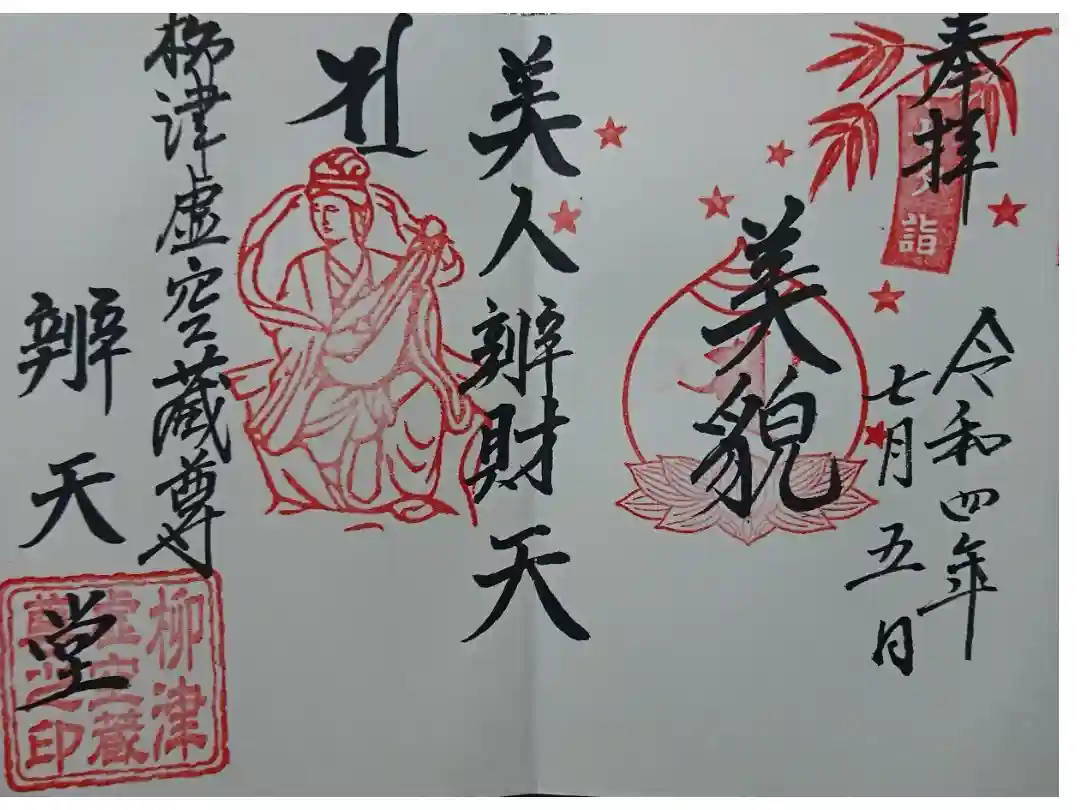 奉拝
詣
令和四年
七月五日
美貌
美人辨財天
柳津虚空蔵尊
辨天堂
柳津
虚空藏
尊之印